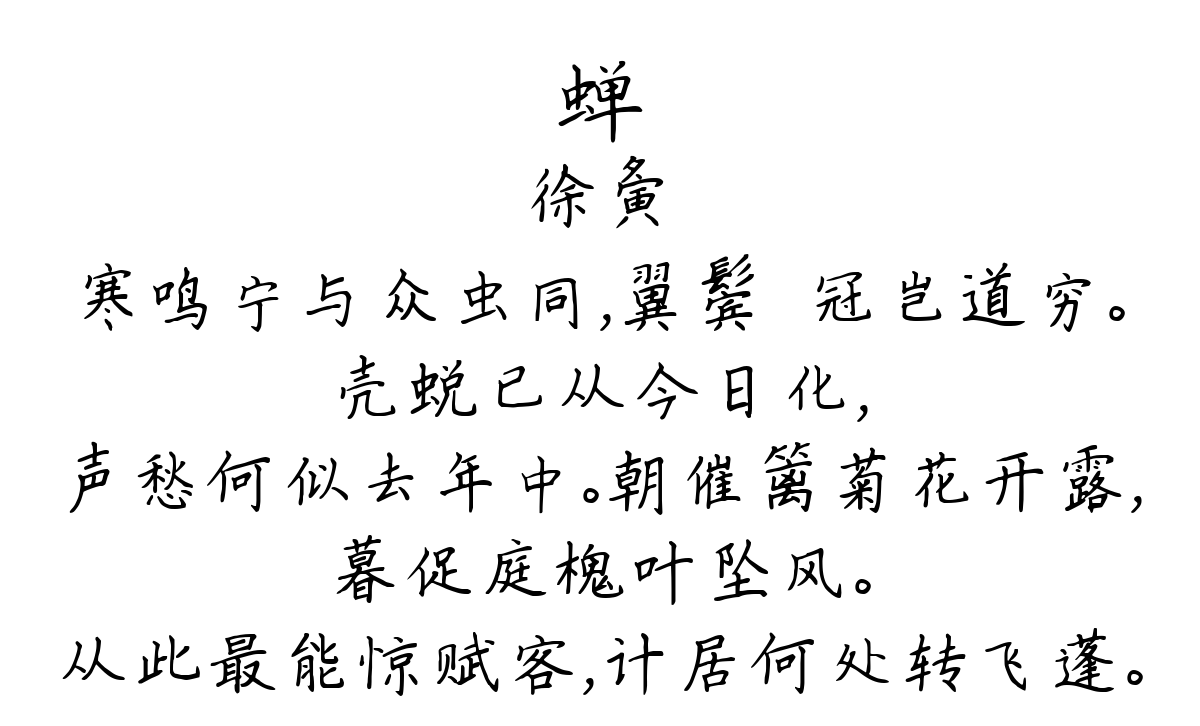 蝉
徐夤
寒鸣宁与众虫同,翼鬓 冠岂道穷。
壳蜕已从今日化,
声愁何似去年中。朝催篱菊花开露,
暮促庭槐叶坠风。
从此最能惊赋客,计居何处转飞蓬。